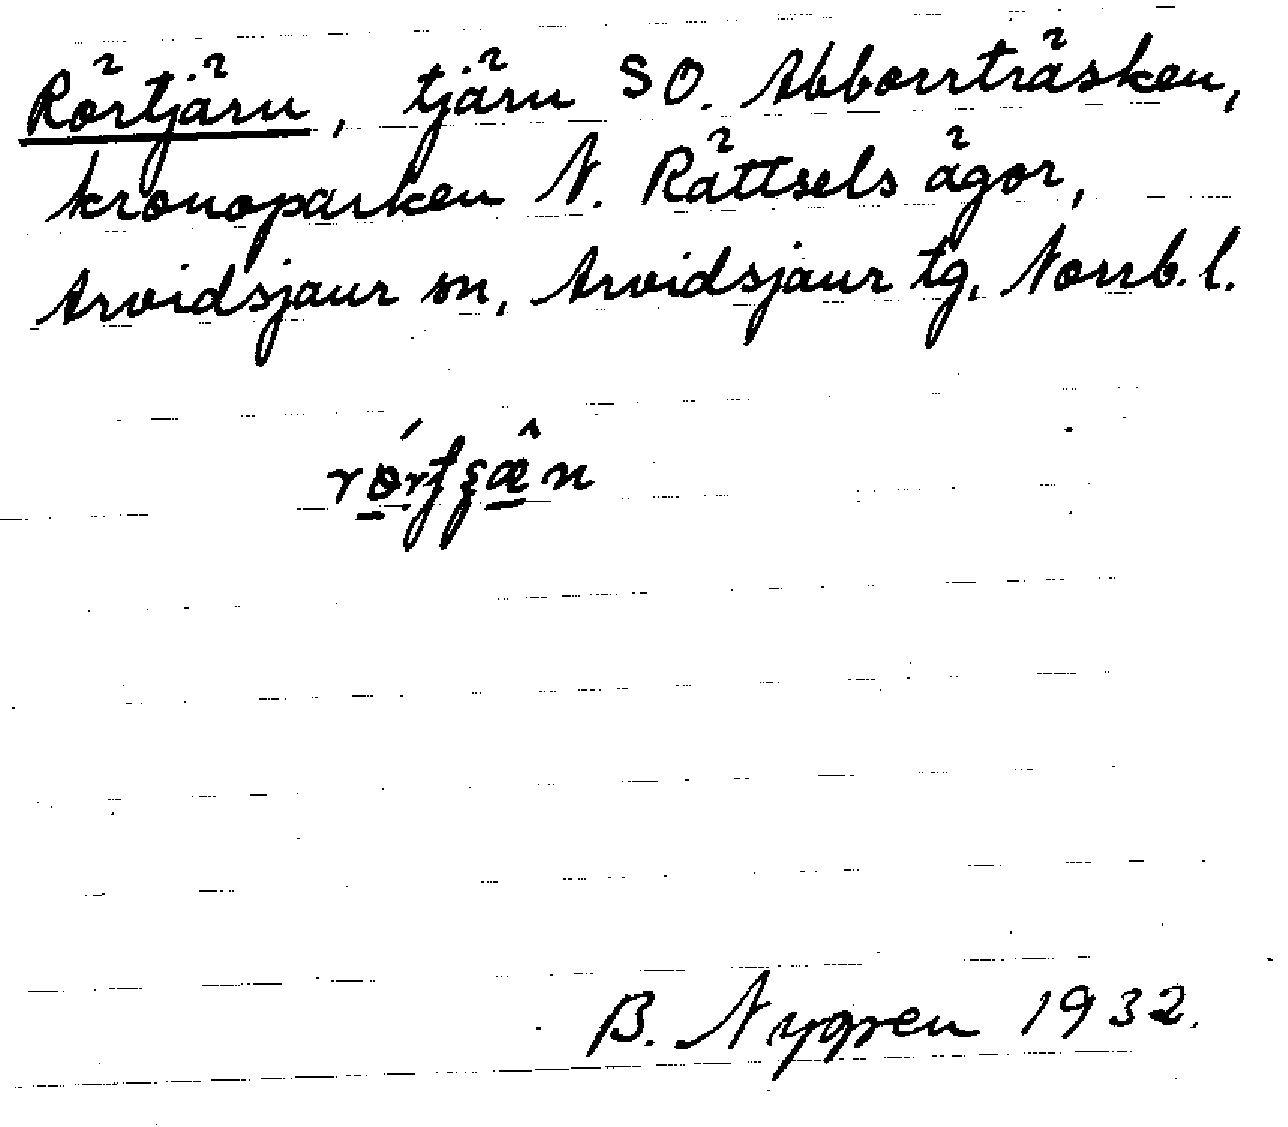 Rörtjärn, tjärn SO. Abborrträsken,
kronoparken N. Rättsels ägor,
Arvidsjaur sn, Arvidsjaur tg, Norrb. l.
B. Nygren 1932.